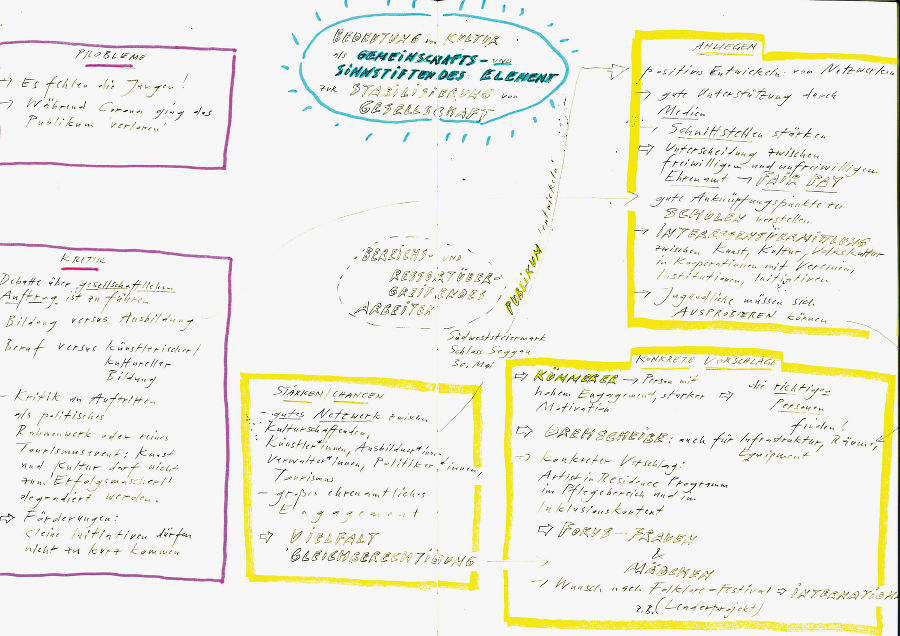 BEDEUTUNG von KULTUR
als GEMEINSCHAFTS- UND
SINNSTIFTENDES ELEMENT
zur STABILISIERUNG von
GESELLSCHAFT
PROBLEME
→ Es fehlen die Jungen!
→ Während Corona ging das
Publikum "verloren"
KRITIK
Debatte über gesellschaftlichen
Auftrag ist zu führen
Bildung versus Ausbildung
Beruf versus künstlerischer/
kultureller
Bildung
- Kritik an Auftritten
als politisches
Rahmenwerk oder reines
Tourismusevent: Kunst
und Kultur darf nicht
zum "Erfolgsmascherl"
degradiert werden.
⇒ Förderungen:
kleine Initiativen dürfen
nicht zu kurz kommen
BEREICHS- UND
RESSORTÜBER-
GREIFENDES
ARBEITEN
PUBLIKUM entwickeln
Südweststeiermark
Schloss Seggau
30. Mai
STÄRKEN/CHANCEN
- gutes Netzwerk zwischen
Kulturschaffenden,
Künstler*innen, Ausbildner*inn.
Verwalter*innen, Politiker*innen,
Tourismus
- großes ehrenamtliches
Engagement
⇒ VIELFALT
GLEICHBERECHTIGUNG
ANLIEGEN
positives Entwickeln von Netzwerken
→ gute Unterstützung durch
Medien
→ Schnittstellen stärken
⇒ Unterscheidung zwischen
freiwilligem und unfreiwilligem
Ehrenamt → FAIR PAY
gute Anknüpfungspunkte zu
SCHULEN herstellen
→ INTERESSENSVERMITTLUNG
zwischen Kunst, Kultur, Volkskultur
in Kooperationen mit Vereinen,
Institutionen, Initiativen
→ Jugendliche müssen sich
AUSPROBIEREN können
KONKRETE VORSCHLÄGE
⇒ KÜMMERER → Person mit
hohem Engagement, starker
Motivation
⇒ die richtigen
Personen
finden!
⇒ DREHSCHEIBE: auch für Infrastruktur, Räume,
Equipment
→ konkreter Vorschlag:
Artist in Residence Programm
im Pflegebereich und im
Inklusionskontext
⇒ FOKUS - FRAUEN
&
MÄDCHEN
→ Wunsch nach Folklore-Festival ⇒ INTERNATION
z.B. (Leaderprojekt)